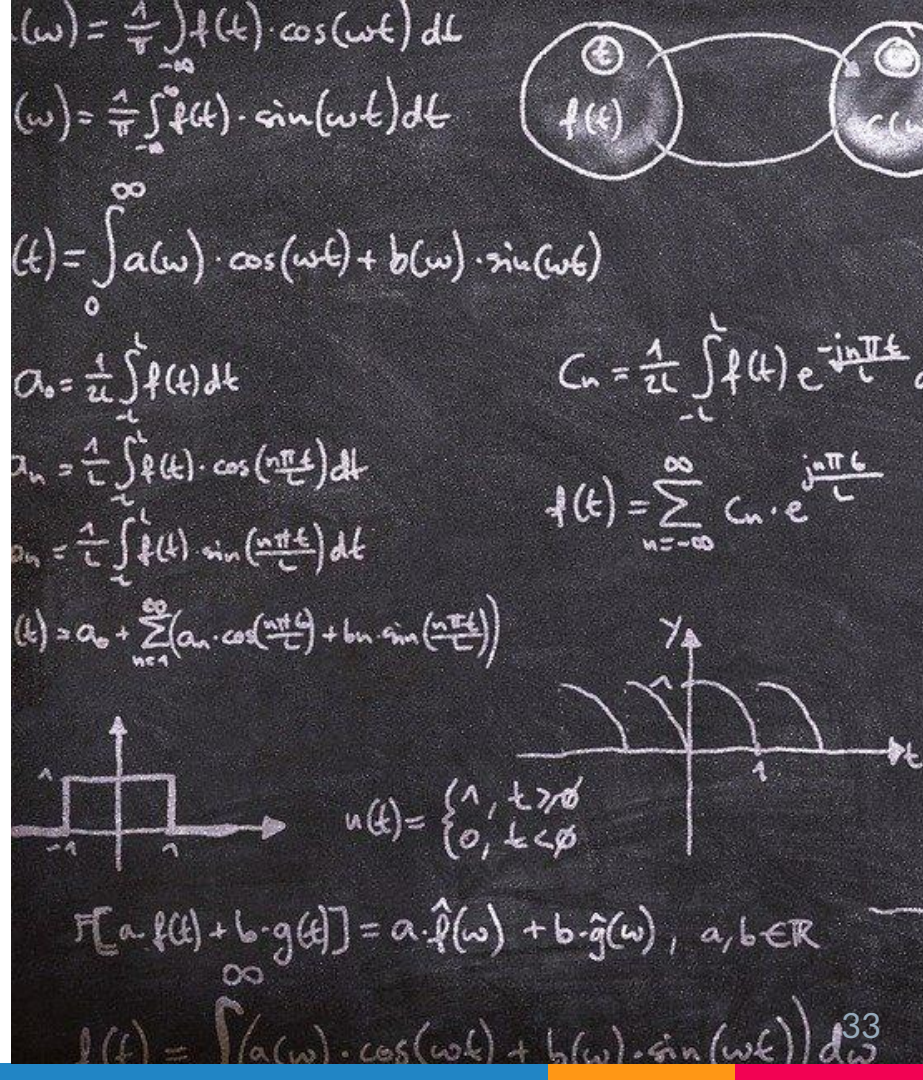 (ω) = 1/π ∫_{-∞} f(t)·cos(ωt) dt
(ω) = 1/π ∫_{-∞}^{∞} f(t)·sin(ωt)dt
t
f(t)
(t) = ∫_0^∞ a(ω)·cos(ωt) + b(ω)·sin(ωt)
a₀ = 1/2L ∫_{-L}^{L} f(t)dt
aₙ = 1/L ∫_{-L}^{L} f(t)·cos(nπt/L)dt
n = 1/L ∫_{-L}^{L} f(t)·sin(nπt/L)dt
(t) = a₀ + ∑_{n=1}^{∞} (aₙ·cos(nπt/L) + bn·sin(nπt/L))
Cn = 1/2L ∫_{-L}^{L} f(t) e^{-jnπt/L}
f(t) = ∑_{n=-∞}^{∞} Cn·e^{jnπt/L}
y
1
t
1
1
-1 1
u(t) = {1, t≥0
0, t<0
F[a·f(t) + b·g(t)] = a·f̂(ω) + b·ĝ(ω), a,b∈ℝ
f(t) = ∫^∞ (a(ω)·cos(ωt) + b(ω)·sin(ωt)) dω
33